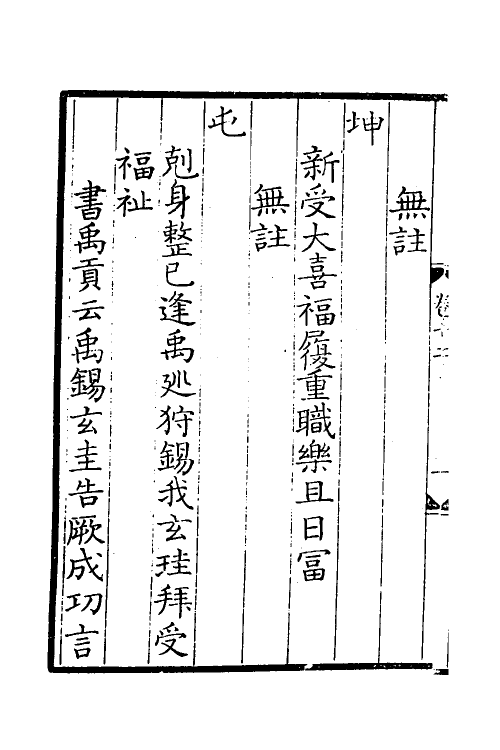 無註
坤
新受大喜福履重職樂且日冨
無註
屯
剋身整己逢禹廵狩錫我玄珪拜受
福祉
書禹貢云禹錫玄圭告厥成功言